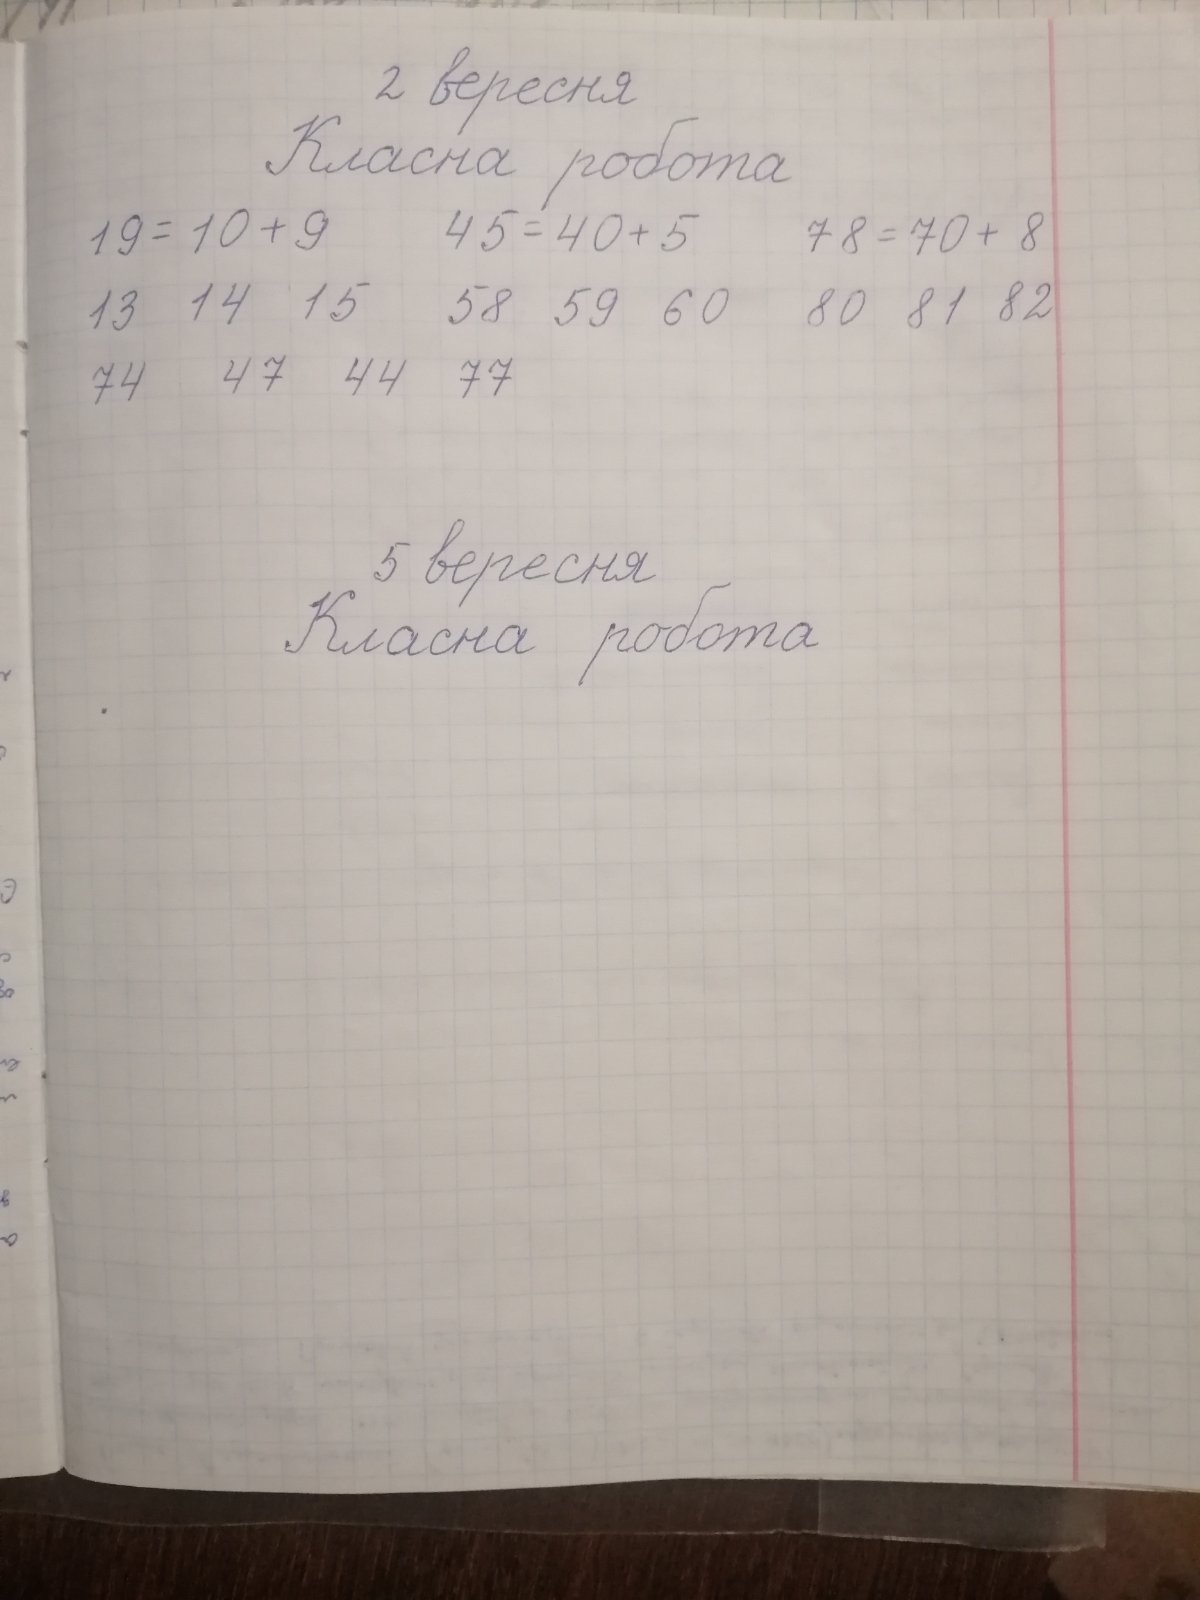 2 вересня
Класна робота
19=10+9 45=40+5 78=70+8
13 14 15 58 59 60 80 81 82
74 47 44 77
5 вересня
Класна робота